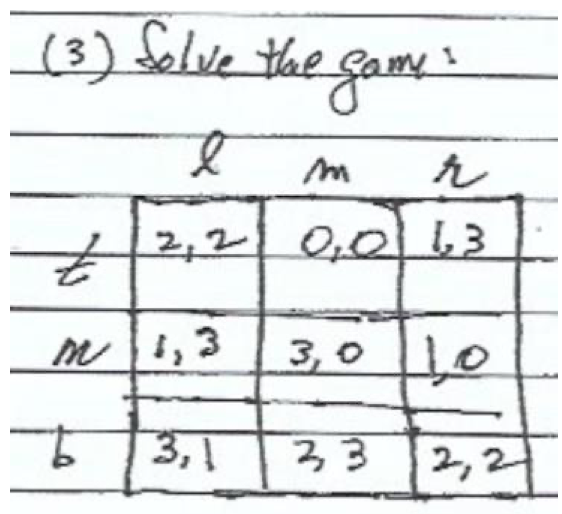 (3) Solve the game:
l m r
t 2,2 0,0 1,3
m 1,3 3,0 1,0
b 3,1 2,3 2,2